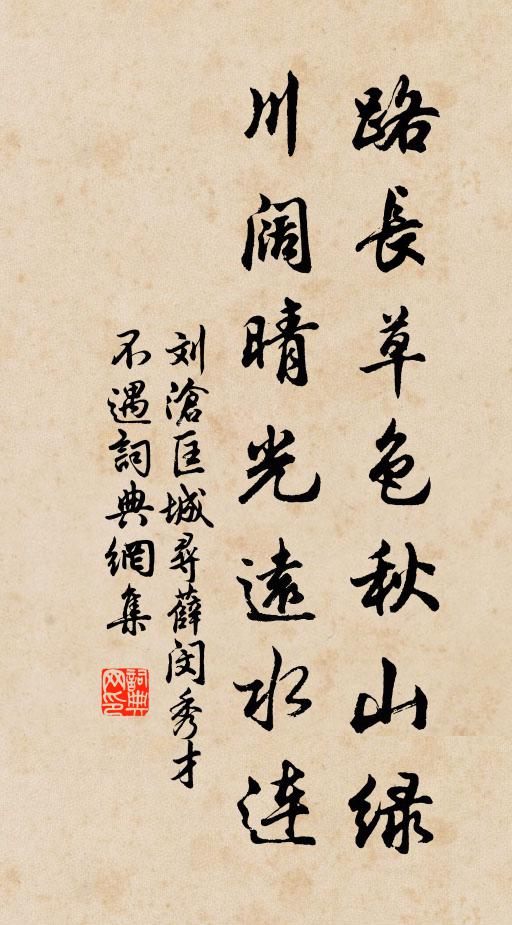 路長草色秋山緑
川阔晴光遠水連
刘滄匡城尋薛闵秀才
不遇詞典網集
詞典
网印